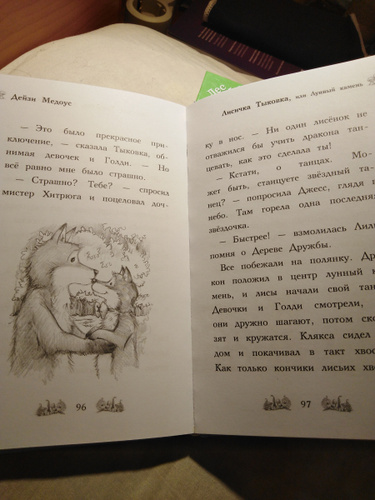 Дейзи Медоус
— Это было прекрасное при-
ключение, — сказала Тыковка, об-
нимая девочек и Голди. — Но
всё равно мне было страшно.
— Страшно? Тебе? — спросил
мистер Хитрюга и поцеловал доч-
96
Лес
Лисичка Тыковка, или Лунный камень
ку в нос. — Ни один лисёнок не
отважился бы учить дракона тан-
цевать, как это сделала ты!
— Кстати, о танцах. Мо-
жет быть, станцуете звёздный та-
нец? — попросила Джесс, глядя н
небо. Там горела одна последняя
звёздочка.
— Быстрее! — взмолилась Лили
помня о Дереве Дружбы.
Все побежали на полянку. Др
кон положил в центр лунный к
мень, и лисы начали свой тан
Девочки и Голди смотрели,
они дружно шагают, потом ско
зят и кружатся. Клякса сидел
дом и покачивал в такт хвос
Как только кончики лисьих хв
97